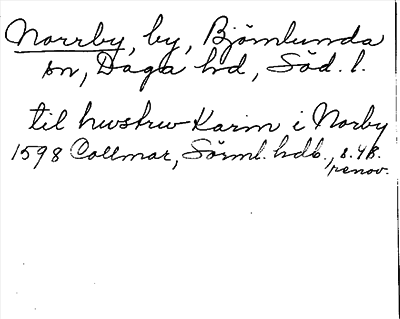 Norrby, by, Björnlunda
sn, Daga hd, Söd. l.
til hwstrw Karin i Norby
1598 Collmar, Sörml. hdb., s. 4B.
renov.